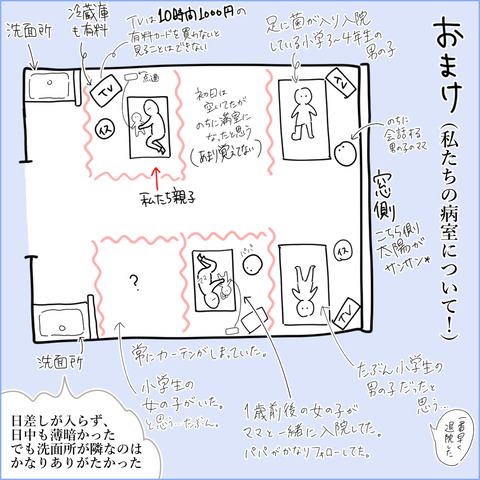 おまけ(私たちの病室について!)
洗面所
冷蔵庫
も有料
TVは10時間1000円の
有料カードを買わないと
見ることはできない
足に菌が入り入院
している小学3〜4年生の
男の子
TV
点滴
イス
初日は
空いてたが
のちに満室に
なったと思う
(あまり覚えてない)
TV
のちに
会話する
男の子のママ
私たち親子
窓側
こちら側
太陽が
サンサン*
?
パパ
ママ
イス
TV
洗面所
常にカーテンがしまっていた。
小学生の
女の子がいた。
と思う…たぶん。
1歳前後の女の子が
ママと一緒に入院してた。
パパがかなりフォローしてた。
たぶん小学生の
男の子だったと
思う…
一番早く
退院した
日差しが入らず、
日中も薄暗かった
でも洗面所が隣なのは
かなりありがたかった